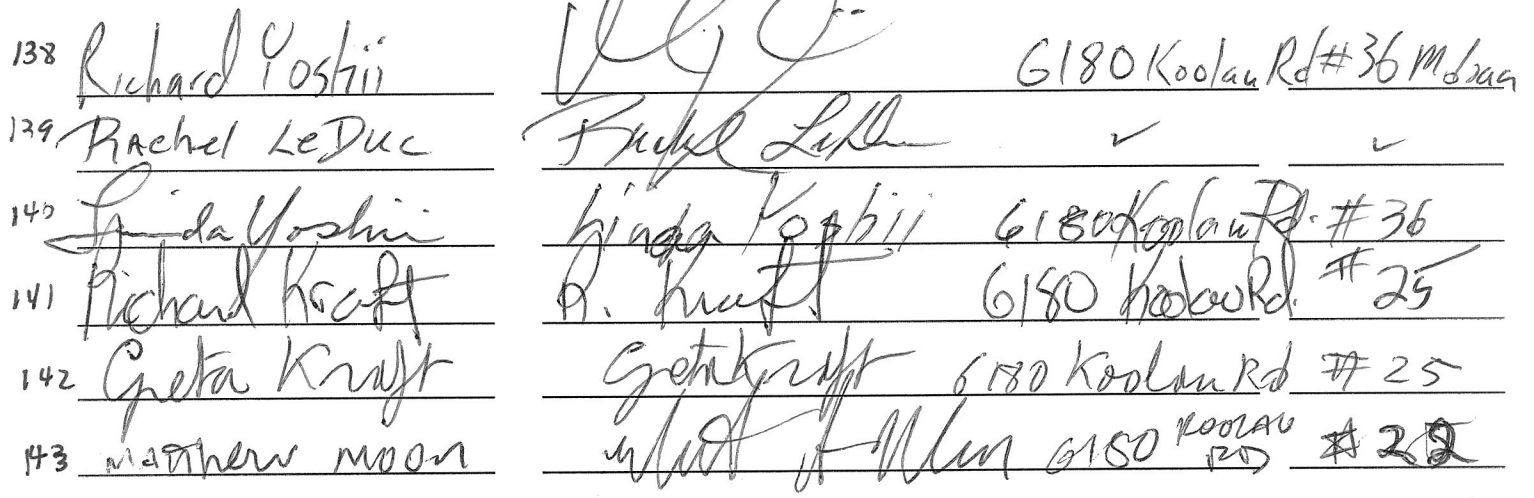 138 Richard Yoshii 6180 Koolau Rd #36
139 Rachel LeDuc Rachel LeDuc ✓ ✓
140 Linda Yoshii Linda Yoshii 6180 Koolau Rd. #36
141 Richard Kraft R. Kraft 6180 Koolau Rd. #25
142 Greta Kraft Greta Kraft 6180 Koolau Rd #25
143 Matthew Moon 6180 KOOLAU RD #22